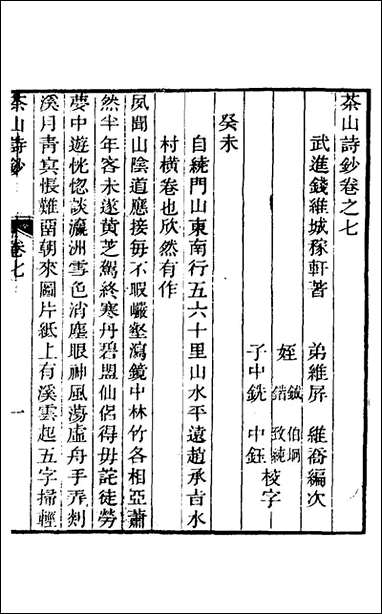 茶山詩鈔卷之七
武進錢維城稼軒著 弟維屏 維喬編次
姪 鉞 伯坰
錯 致純 校字
子中銑 中鈺
癸未
自繞門山東南行五六十里山水平遠趙承旨水
村橫卷也欣然有作
夙聞山陰道應接每不暇巖壑瀉鏡中林竹各相亞蕭
然半年客未遂黃芝駕終寒丹碧盟仙侶得毋詫徒勞
夢中遊恍惚談瀛洲雪色消塵眼神風蕩虛舟手弄剡
溪月青冥悵難留朝來圖片紙上有溪雲起五字掃輕
茶山詩鈔 卷七 一